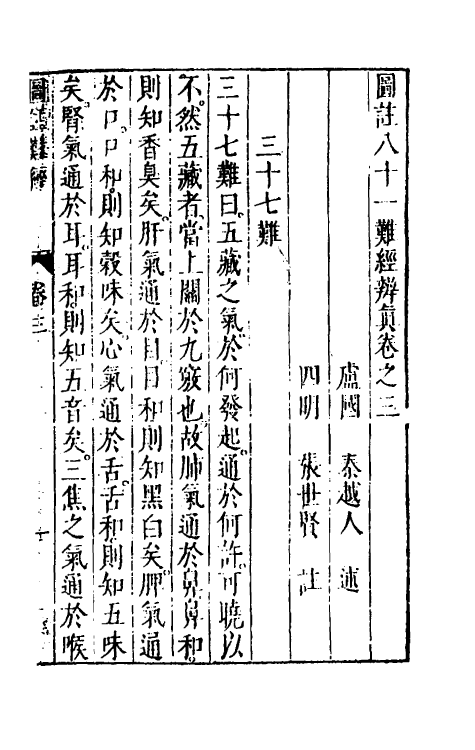 圖註八十一難經辨眞卷之三
盧國　秦越人　述
四明　張世賢　註
三十七難
三十七難曰。五藏之氣。於何發起。通於何許。可曉以
不。然五藏者。當上關於九竅也。故肺氣通於鼻。鼻和。
則知香臭矣。肝氣通於目。目和則知黑白矣。脾氣通
於口。口和。則知穀味矣。心氣通於舌。舌和。則知五味
矣。腎氣通於耳。耳和。則知五音矣。三焦之氣通於喉
圖註難經　卷三